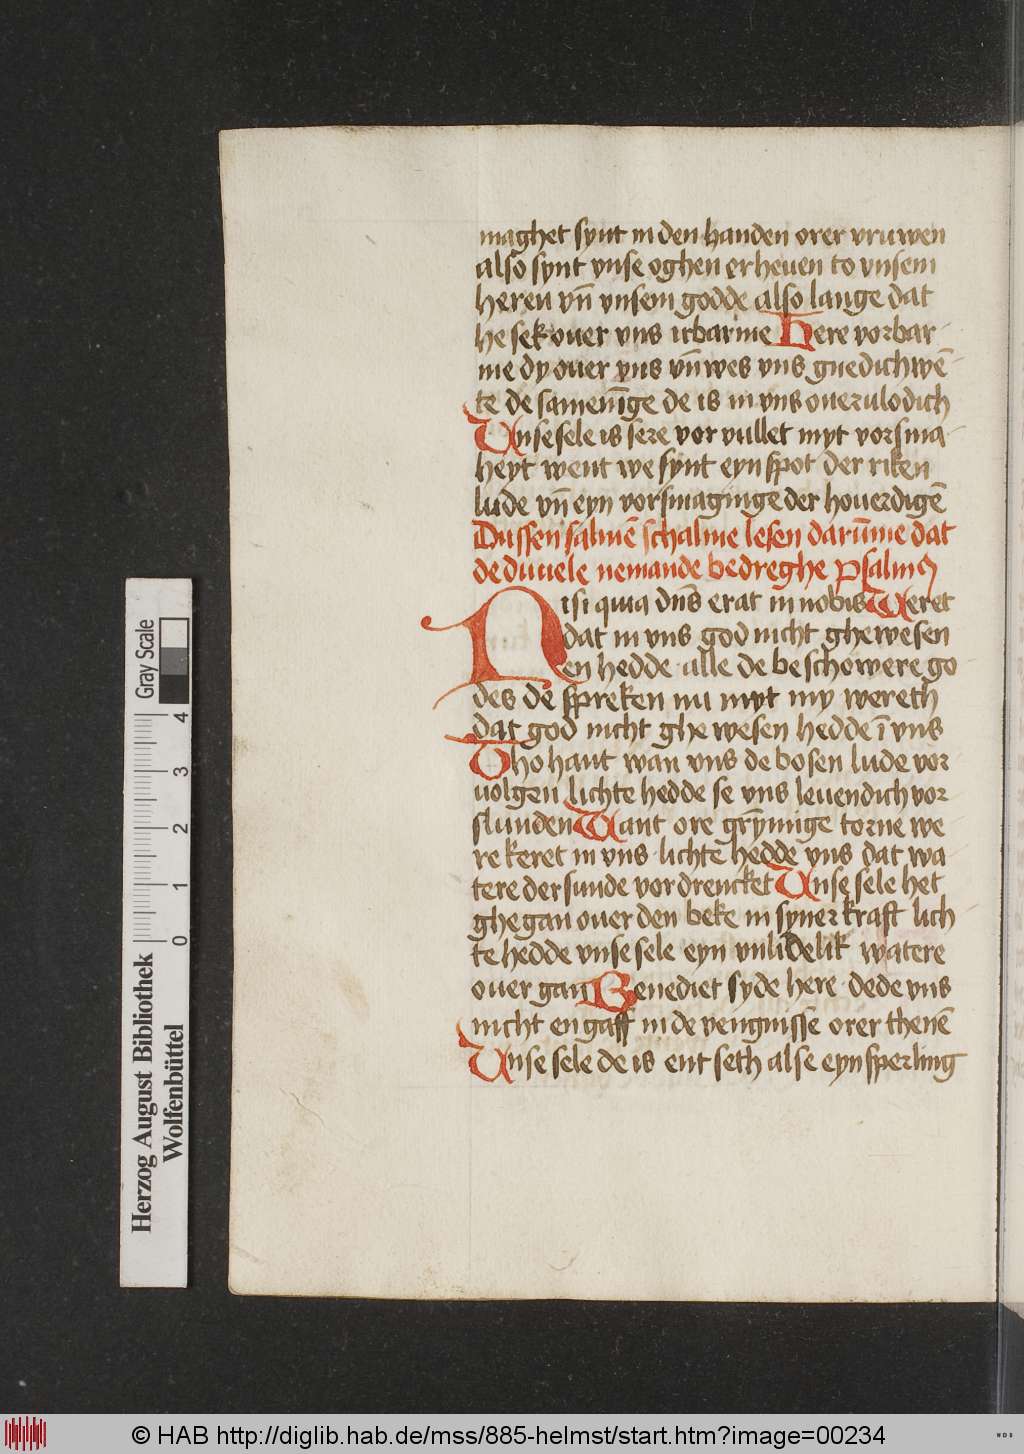 maghet synt in den handen orer vruwen
also synt vnse oghen erheuen to vnsem
heren vn̄ vnsem godde also lange dat
he sek ouer vns irbarme Here vorbar-
me dy ouer vns vn̄ wes vns gnedich wē-
te de samenīge de is in vns ouerulodich
Vnse sele is sere vor vullet myt vorsma-
heyt went we synt eyn spot der riken
lude vn̄ eyn vorsmaginge der houerdigē
Dussen salmē schalme lesen darūme dat
de duuele nemande bedreghe Psalmꝯ
Nisi quia dn̄s erat in nobis Weret
dat in vns god nicht ghewesen
en hedde alle de beschowere go
des de spreken nu myt my wereth
dat god nicht ghe wesen hedde ī vns
Tho hant wan vns de bosen lude vor
uolgen lichte hedde se vns leuendich vor
slunden Want ore grȳmige torne we
re keret in vns lichte hedde vns dat wa-
tere der sunde vor drencket Vnse sele het
ghegan ouer den beke in syner kraft lich-
te hedde vnse sele eyn vnlidelik watere
ouer gan Benediet syde here dede vns
nicht en gaff in de vengnisse orer thenē
Vnse sele de is ent seth alse eyn sperling
Herzog August Bibliothek
Wolfenbüttel
0 1 2 3 4
Gray Scale
© HAB http://diglib.hab.de/mss/885-helmst/start.htm?image=00234
WDB